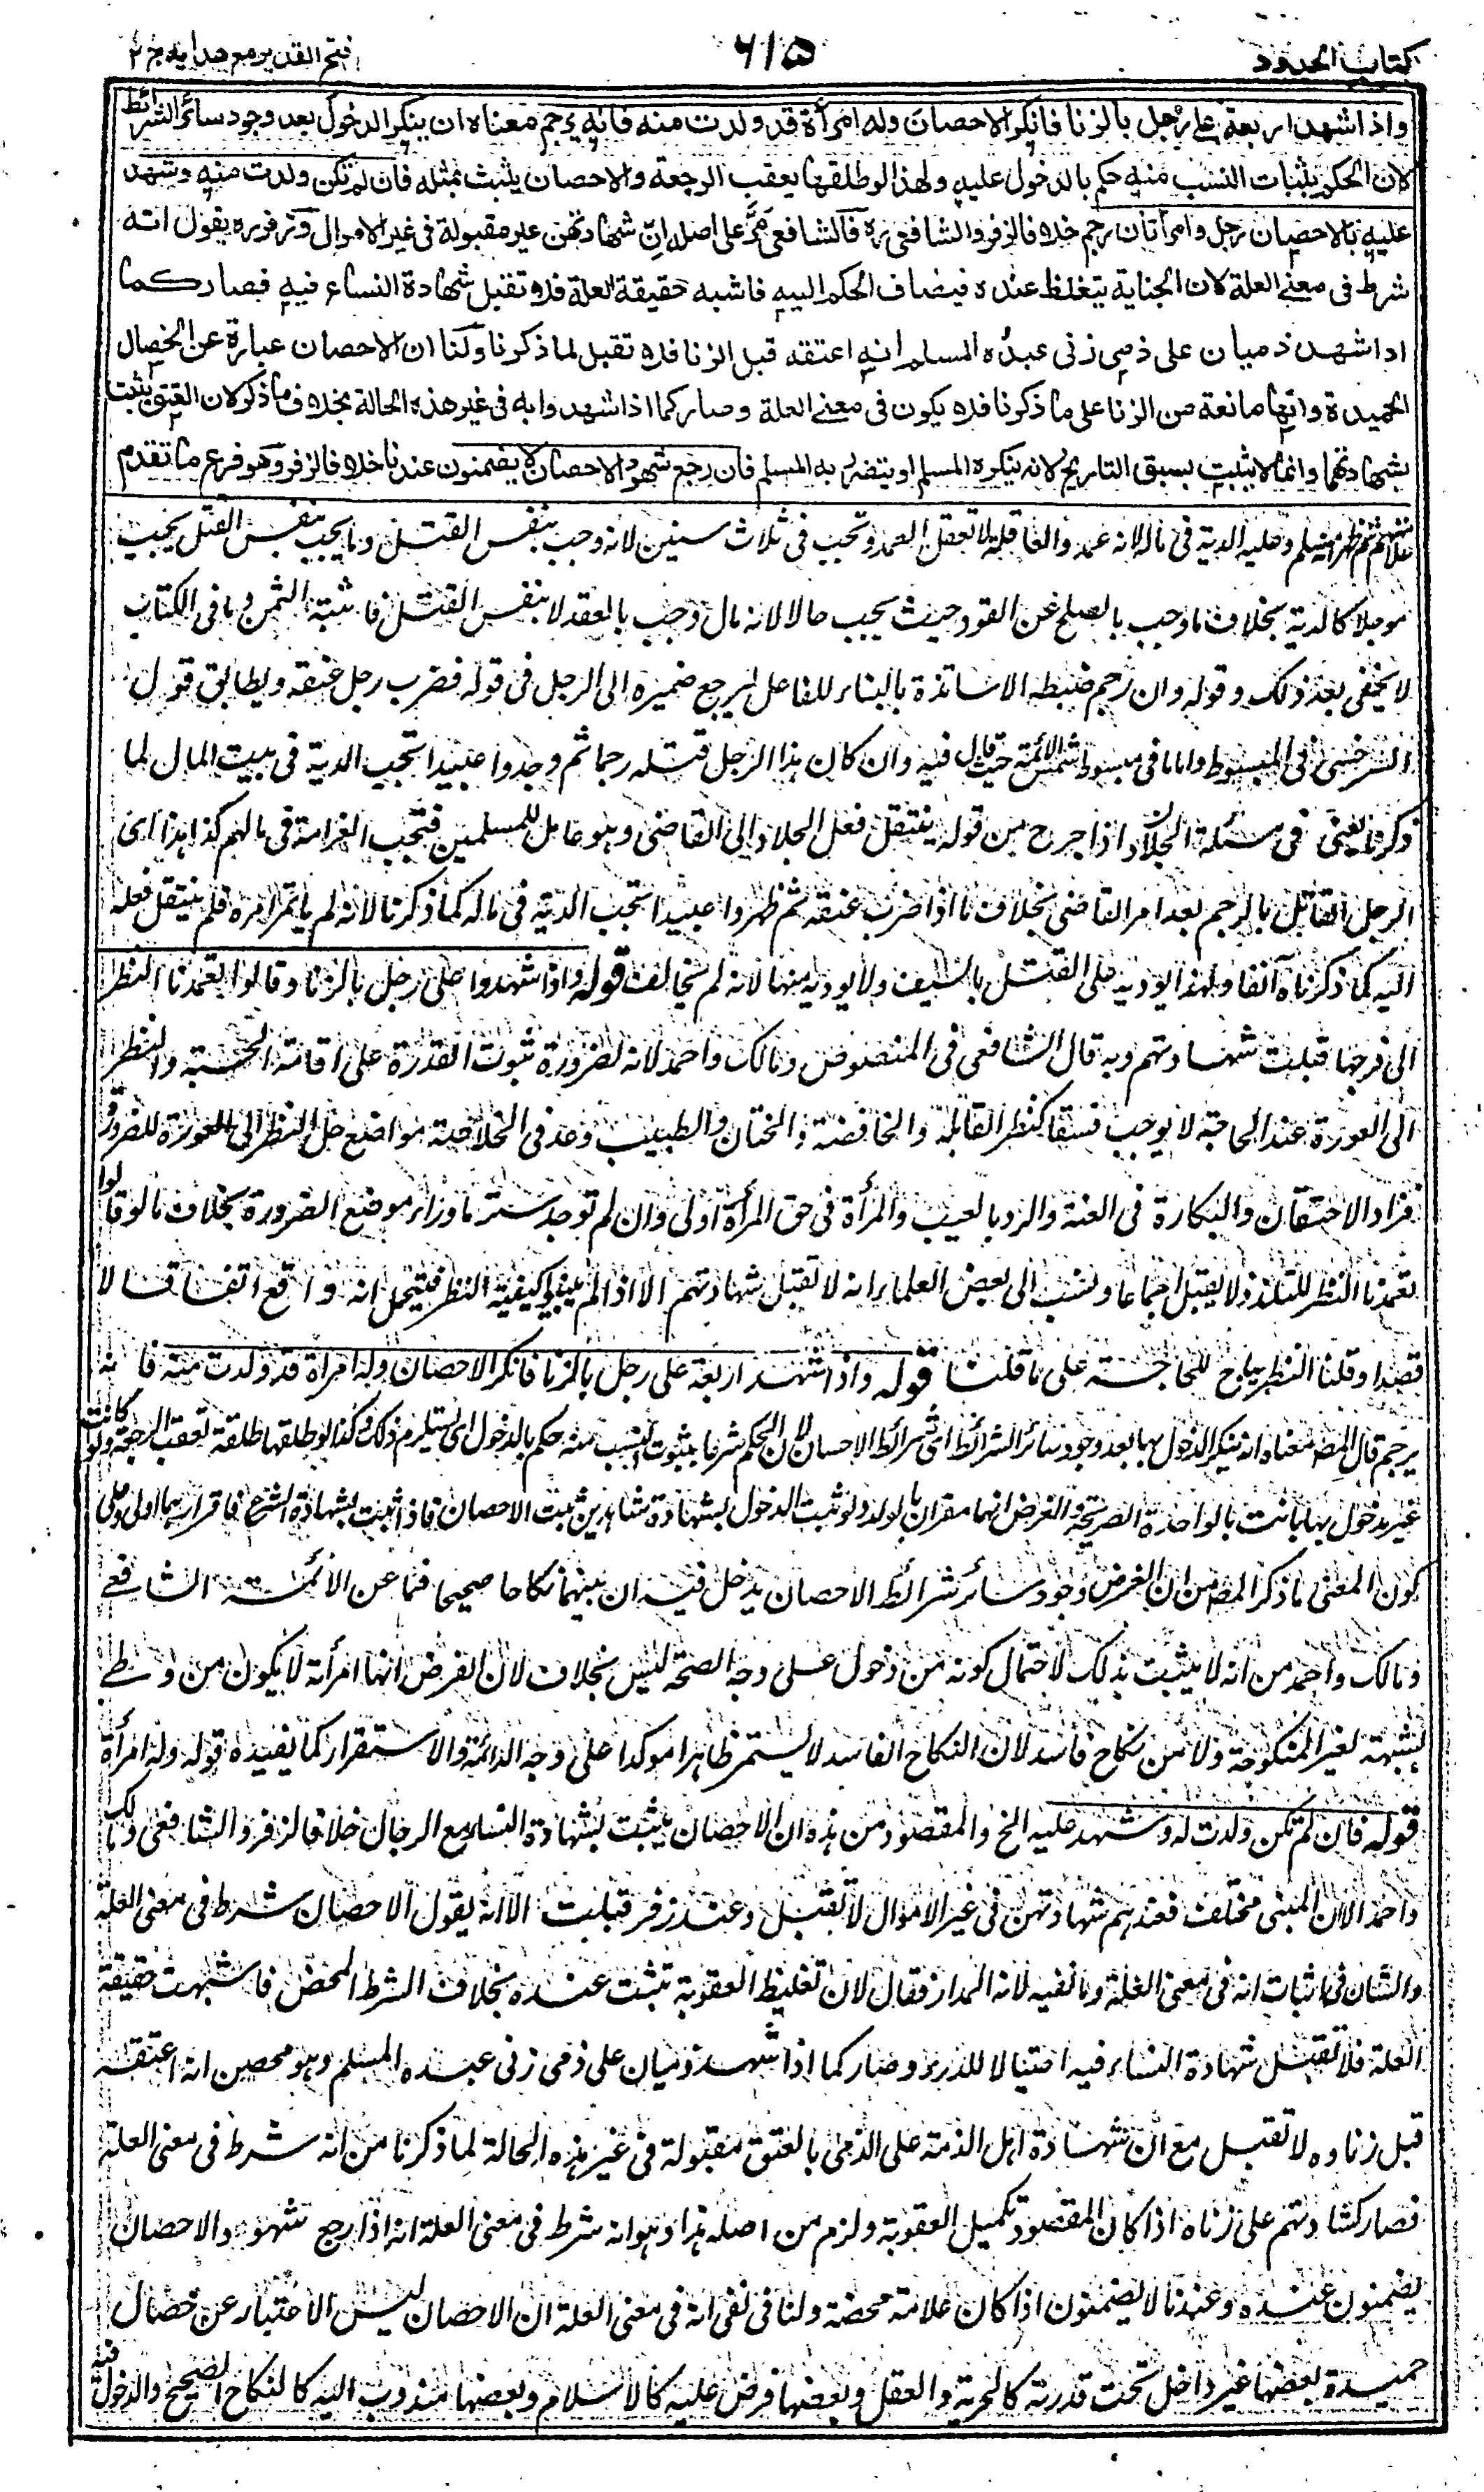 كتاب الحدود
٦١٥
فتح القدير مع هدايه ج ٢
واذا شهد اربعة على رجل بالزنا فانكر الاحصان وله امرأة قد ولدت منه فانه يرجم معناه ان ينكر الدخول بعد وجود سائر الشرائط
لان الحكم بثبات النسب منه حكم بالدخول عليه ولهذا لو طلقها يعقب الرجعة والاحصان يثبت بمثله فان لم تكن ولدت منه وشهد
عليه بالاحصان رجل وامرأتان رجم خلافا لزفر والشافعي ره فالشافعي مرّ على اصله انّ شهادتهن غير مقبولة في غير الاموال وزفر ره يقول انه
شرط في معنى العلة لان الجناية يتغلظ عنده فيضاف الحكم اليه فاشبه حقيقة العلة فلا تقبل شهادة النساء فيه فصار كما
اذا شهد ذميان على ذمي زنى عبده المسلم انه اعتقه قبل الزنا فلا تقبل لما ذكرنا ولنا ان الاحصان عبارة عن الخصال
الحميدة وانها مانعة من الزنا على ما ذكرنا فلا يكون في معنى العلة وصار كما اذا شهدوا به في غير هذه الحالة بخلاف ما ذكر لان العتق يثبت
بشهادتهما وانما لا يثبت بسبق التاريخ لانه ينكره المسلم او يتضرر به المسلم فان رجع شهود الاحصان لا يضمنون عندنا خلافا لزفر وهو فرع ما تقدم
وعليه الدية في ماله لانه عمد والعاقلة لا تعقل العمد وتجب في ثلاث سنين لانه وجب بنفس القتل وما يجب بنفس القتل يجب
موجلا كالدية بخلاف ما وجب بالصلح عن القود حيث يجب حالا لانه مال وجب بالعقد لا بنفس القتل فاشبه الثمن وما في الكتاب
لا يخفى بعد ذلك وقوله وان رجم ضبطه الاساتذة بالبناء للفاعل ليرجع ضميره الى الرجل في قوله فضرب رجل عنقه وليطابق قول
السرخسي في المبسوط واما ما في مبسوط شمس الائمة حيث قال فيه وان كان هذا الرجل قتله رجما ثم وجدوا عبيدا تجب الدية في بيت المال لما
ذكرنا يعني في مسئلة الجلاد اذا جرح من قوله ينتقل فعل الجلاد الى القاضي وهو عامل للمسلمين فتجب الغرامة في مالهم كذا هذا اي
الرجل القاتل بالرجم بعد امر القاضي بخلاف ما اذا ضرب عنقه ثم ظهروا عبيدا تجب الدية في ماله كما ذكرنا لانه لم يأتمر امره فلم ينتقل فعله
اليه كما ذكرناه آنفا ولهذا يودبه على القتل بالسيف ولا يودبه منها لانه لم يخالف قوله واذا شهدوا على رجل بالزنا وقالوا تعمدنا النظر
الى فرجها قبلت شهادتهم وبه قال الشافعي في المنصوص ومالك واحمد لانه لضرورة ثبوت القدرة على اقامة الحسبة والنظر
الى العورة عند الحاجة لا يوجب فسقا كنظر القابلة والخافضة والختان والطبيب وعد في الخلاصة مواضع حل النظر الى العورة للضرورة
فزاد الاحتقان والبكارة في العنة والرد بالعيب والمرأة في حق المرأة اولى وان لم توجد ستر ما وراء موضع الضرورة بخلاف ما لو قالوا
تعمدنا النظر للتلذذ لا يقبل اجماعا ونسب الى بعض العلماء انه لا تقبل شهادتهم الا اذا لم يبينوا كيفية النظر فيحمل انه وقع اتفاقا لا
قصدا وقلنا النظر يباح للحاجة على ما قلنا قوله واذا شهد اربعة على رجل بالزنا فانكر الاحصان وله امرأة قد ولدت منه فانه
يرجم قال المصـ معناه ان ينكر الدخول بها بعد وجود سائر الشرائط اى شرائط الاحصان لان الحكم شرعا بثبوت النسب منه حكم بالدخول اى يستلزم ذلك وكذا لو طلقها طلقة تعقب الرجعة ولو كانت
غير مدخول بها بانت بالواحدة الصريحة والفرض انهما مقران بالولد ولو ثبت الدخول بشهادة شاهدين ثبت الاحصان فاذا ثبت بشهادة الشرع فاقرارهما اولى وعلى
كون المعنى ما ذكر المصـ من ان الفرض وجود سائر شرائط الاحصان يدخل فيه ان بينهما نكاحا صحيحا فما عن الائمة الشافعي
ومالك واحمد من انه لا يثبت بذلك لاحتمال كونه من دخول على وجه الصحة ليس بخلاف لان الفرض انها امرأة لا يكون من وطئ
بشبهة لغير المنكوحة ولا من نكاح فاسد لان النكاح الفاسد لا يستمر ظاهرا موكدا على وجه الدائمة والاستقرار كما يفيده قوله وله امرأة
قوله فان لم تكن ولدت له وشهد عليه الخ والمقصود من هذه ان الاحصان يثبت بشهادة النساء مع الرجال خلافا لزفر والشافعي ومالك
واحمد الا ان المبنى مختلف فعندهم شهادتهن في غير الاموال لا تقبل وعند زفر قبلت الا انه يقول الاحصان شرط في معنى العلة
والشان في اثبات انه في معنى العلة وما نفيه لانه المدار فقال لان تغليظ العقوبة تثبت عنده بخلاف الشرط المحض فاشبهت حقيقة
العلة فلا تقبل شهادة النساء فيه احتيالا للدرء وصار كما اذا شهد ذميان على ذمي زنى عبده المسلم وهو محصن انه اعتقه
قبل زناه لا تقبل مع ان شهادة اهل الذمة على الذمي بالعتق مقبولة في غير هذه الحالة لما ذكرنا من انه شرط في معنى العلة
فصار كشهادتهم على زناه اذا كان المقصود تكميل العقوبة ولزم من اصله هذا وهو انه شرط في معنى العلة انه اذا رجع شهود الاحصان
يضمنون عنده وعندنا لا يضمنون اذا كان علامة محضة ولنا في نفي انه في معنى العلة ان الاحصان ليس الا عبارة عن خصال
حميدة بعضها غير داخل تحت قدرته كالحرية والعقل وبعضها فرض عليه كالاسلام وبعضها مندوب اليه كالنكاح الصحيح والدخول فيه